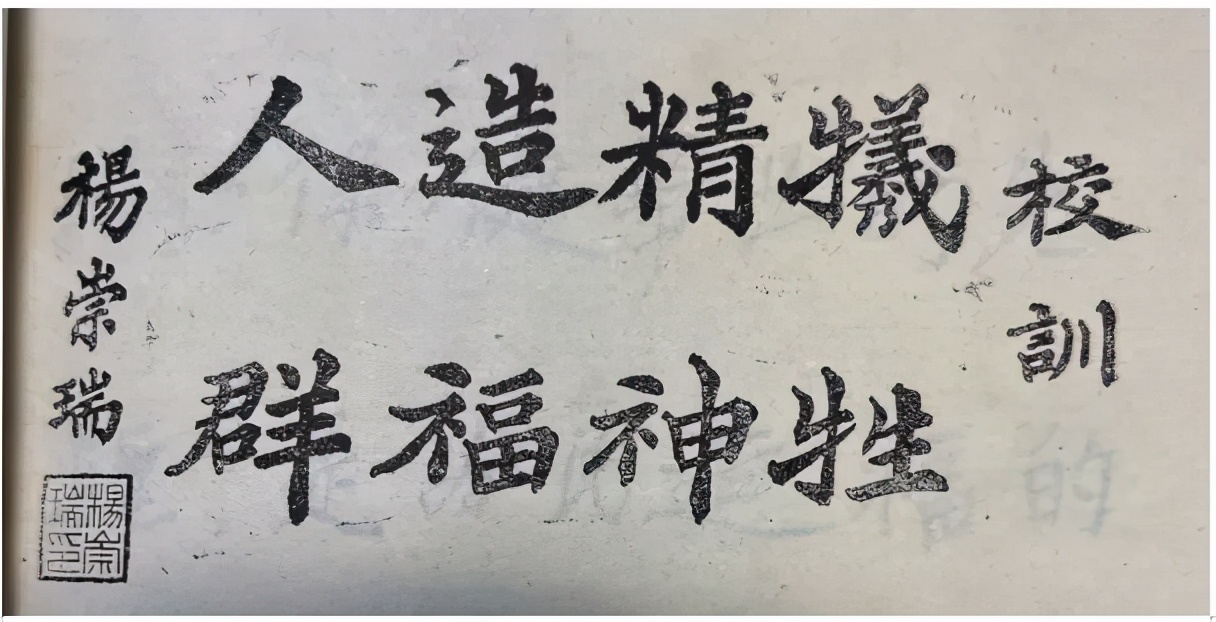 校訓
犧牲
精神
造福
人群
楊崇瑞
楊崇瑞印